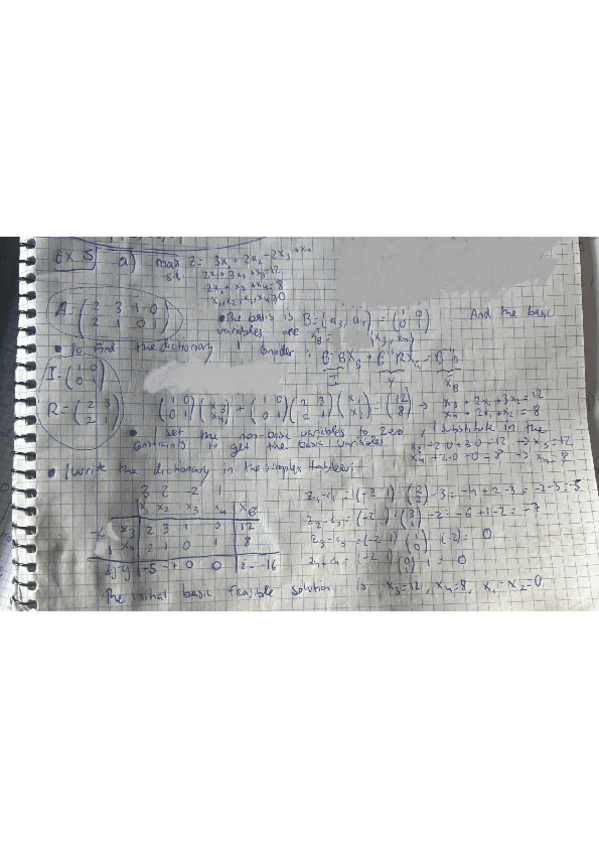 EX 5 a) max z = 3x₁ + 2x₂ - 2x₃ + x₄
st. 2x₁ + 3x₂ + x₃ = 12
2x₁ + x₂ + x₄ = 8
x₁, x₂, x₃, x₄ ≥ 0
A = (2 3 1 0
2 1 0 1)
• The basis is B = (a₃, a₄) = (1 0
0 1) And the basic
variables are x_B = (x₃, x₄)
• To find the dictionary I consider :
B⁻¹BX_B + B⁻¹RX_R = B⁻¹b
I Y X_B
I = (1 0
0 1)
R = (2 3
2 1)
(1 0
0 1) (x₃
x₄) + (1 0
0 1) (2 3
2 1) (x₁
x₂) = (12
8) → x₃ + 2x₁ + 3x₂ = 12
x₄ + 2x₁ + x₂ = 8
• I set the non-basic variables to zero, I substitute in the
constraints to get the basic variables
x₃ + 2·0 + 3·0 = 12 → x₃ = 12
x₄ + 2·0 + 0 = 8 → x₄ = 8
• I write the dictionary in the simplex tableau:
3 2 -2 1
x₁ x₂ x₃ x₄ X_B
-2 x₃ 2 3 1 0 12
1 x₄ 2 1 0 1 8
zj-cj -5 -7 0 0 z = -16
z₁-c₁ = (-2 1) (2
2) - 3 = -4 + 2 - 3 = -2 - 3 = -5
z₂-c₂ = (-2 1) (3
1) - 2 = -6 + 1 - 2 = -7
z₃-c₃ = (-2 1) (1
0) (-2) = 0
z₄-c₄ = (-2 1) (0
1) - 1 = 0
The initial basic feasible solution is x₃ = 12, x₄ = 8, x₁ = x₂ = 0